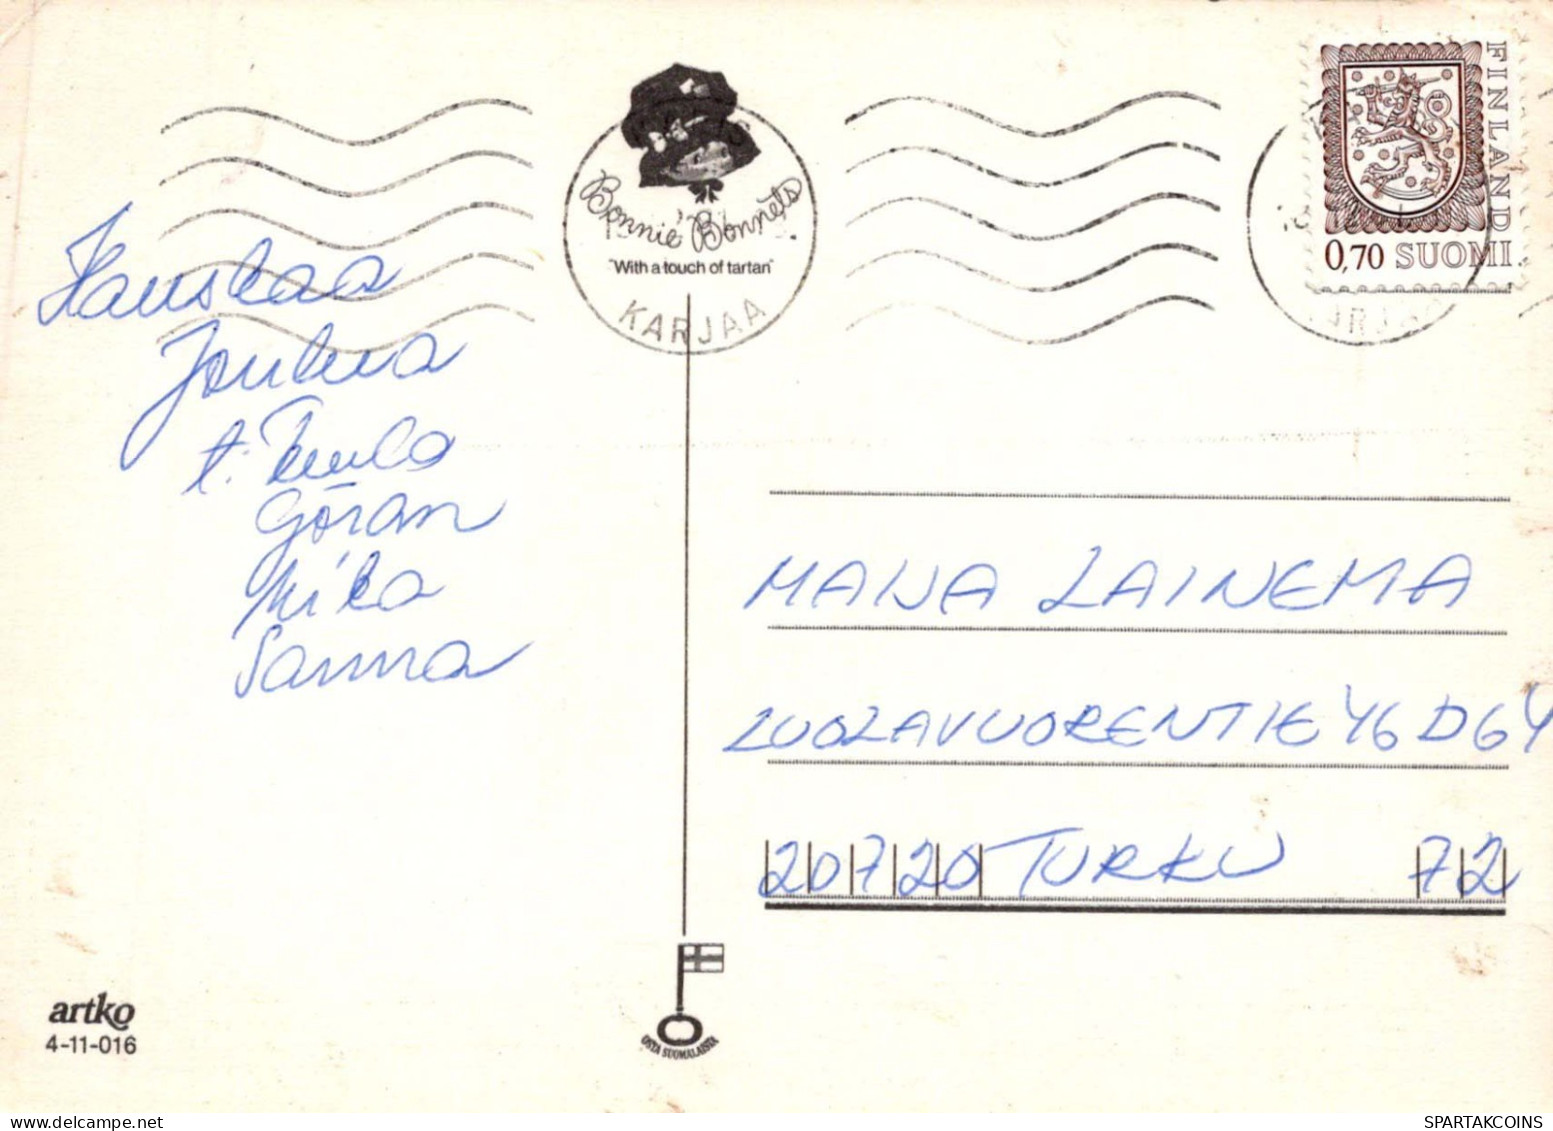 Hauskaa
Joulua
t.
Göran
Mika
Sanna
Bonnie Bonnets
"With a touch of tartan"
KARJAA
FINLAND
0,70 SUOMI
MAIJA LAINEMA
LUOLAVUORENTIE 46 D 64
20720 TURKU 72
artko
4-11-016
OSTA SUOMALAISTA
SPARTAKCOINS